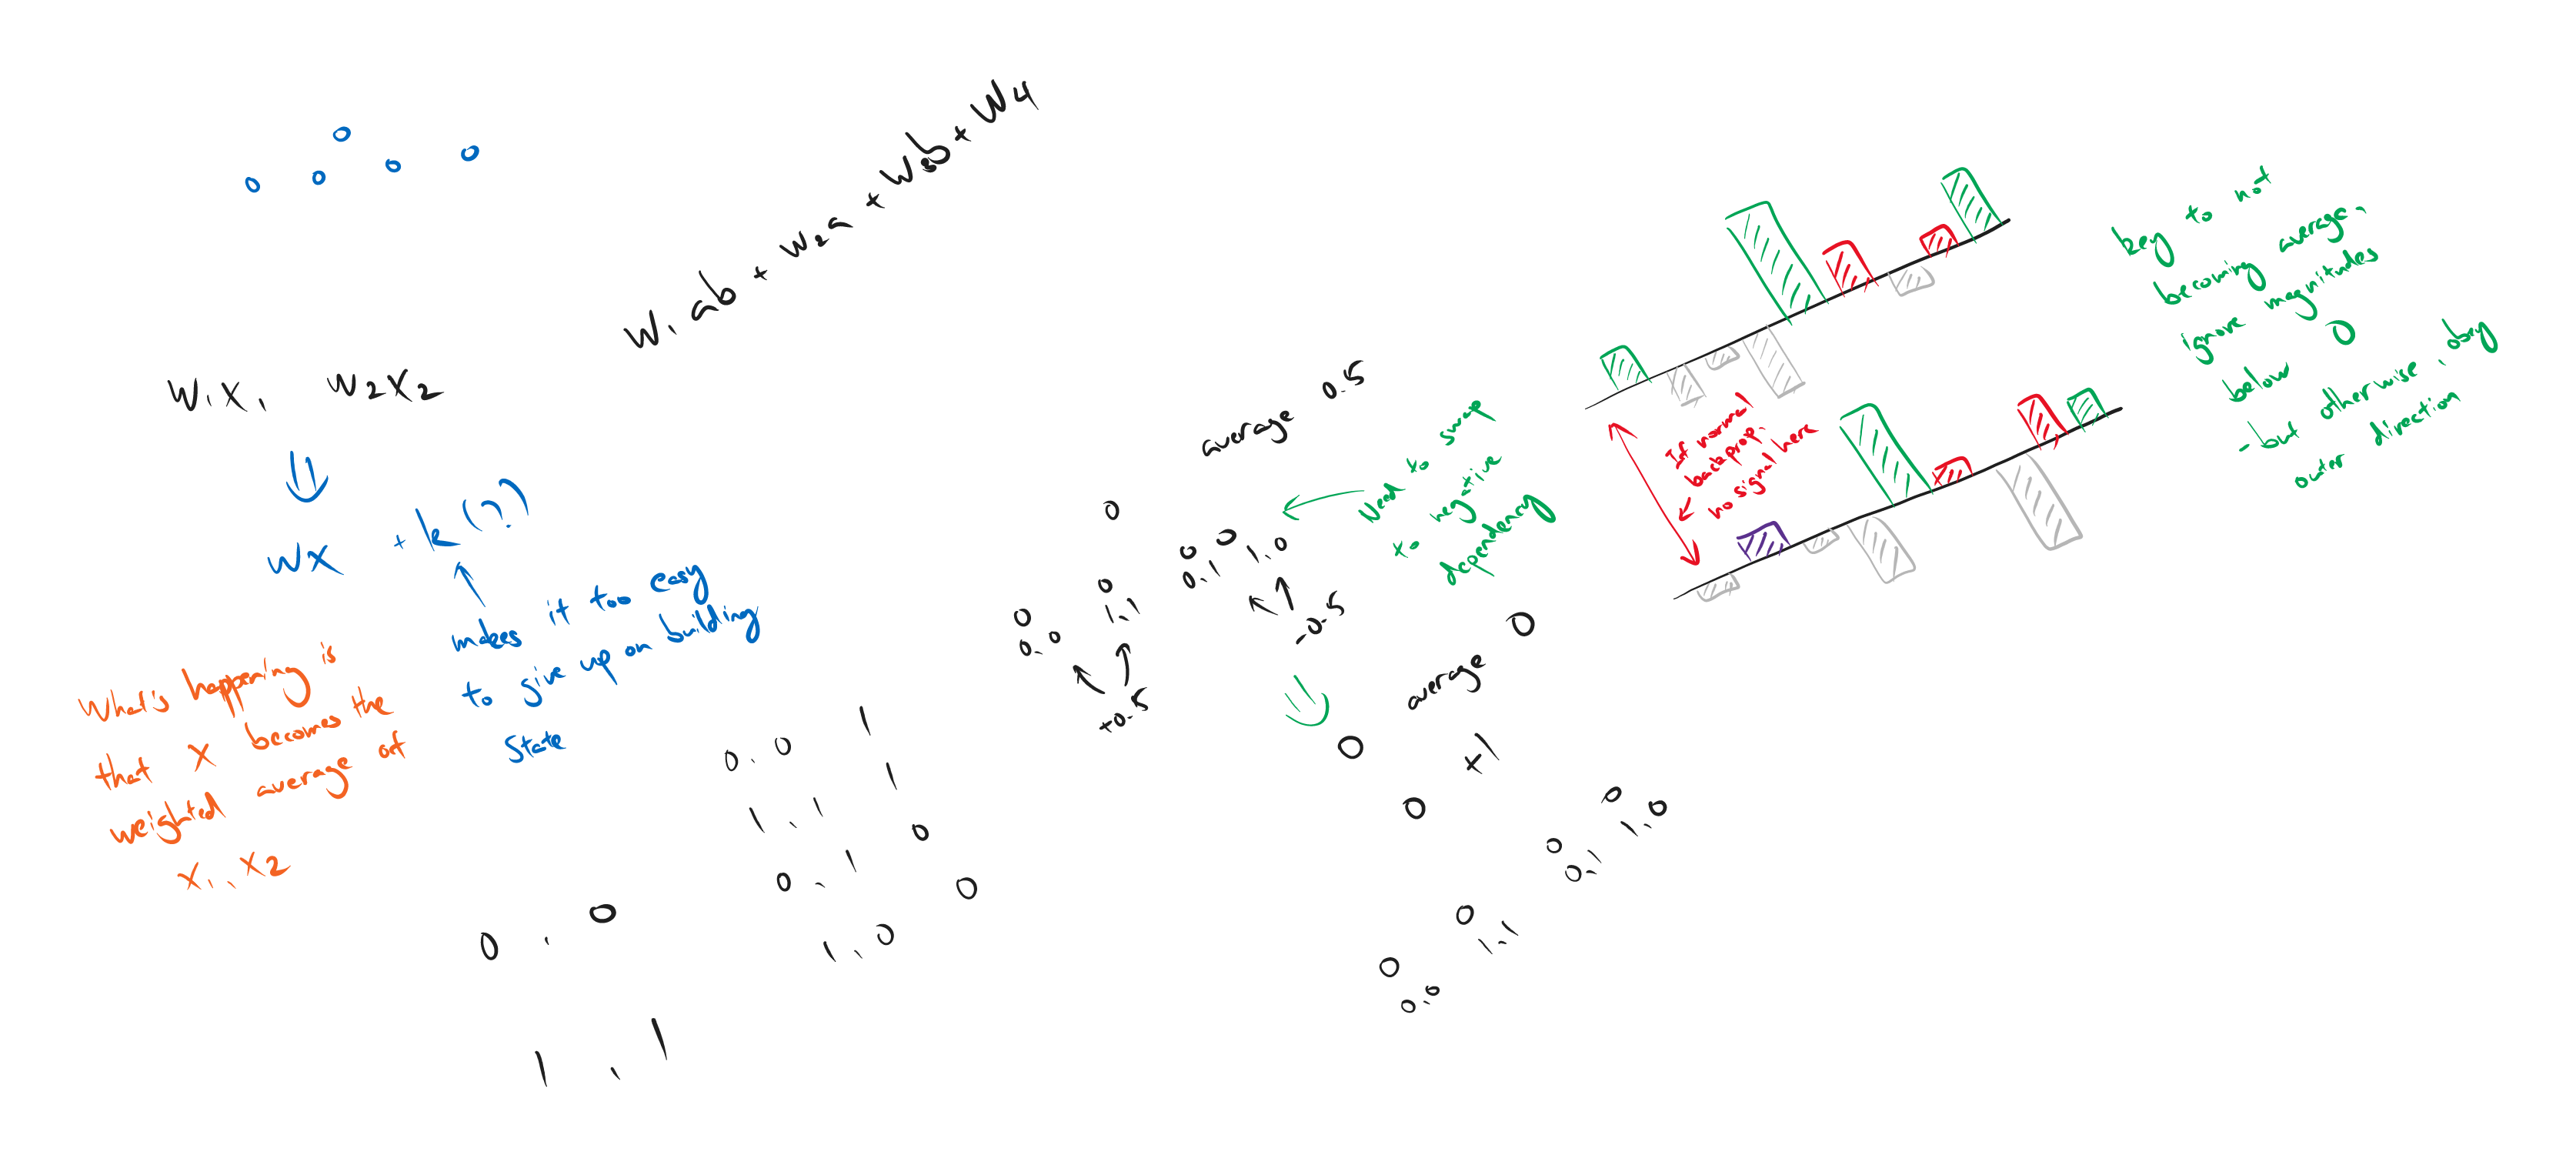 w₁ab + w₂a + w₃b + w4
w₁x₁ w₂x₂
wx + k(?)
makes it too easy
to give up on building
state
What's happening is
that x becomes the
weighted average of
x₁, x₂
0, 0
1, 1
0, 0 1
1, 1 1
0, 1 0
1, 0 0
average 0.5
0
0 0 0 0
0, 0 1, 1 0, 1 1, 0
+0.5 -0.5
Need to swap
to negative
dependency
average 0
0
0 +1
0 0 0 0
0, 0 1, 1 0, 1 1, 0
If normal
backprop,
no signal here
key to not
becoming average,
ignore magnitudes
below 0
- but otherwise, obey
outer direction